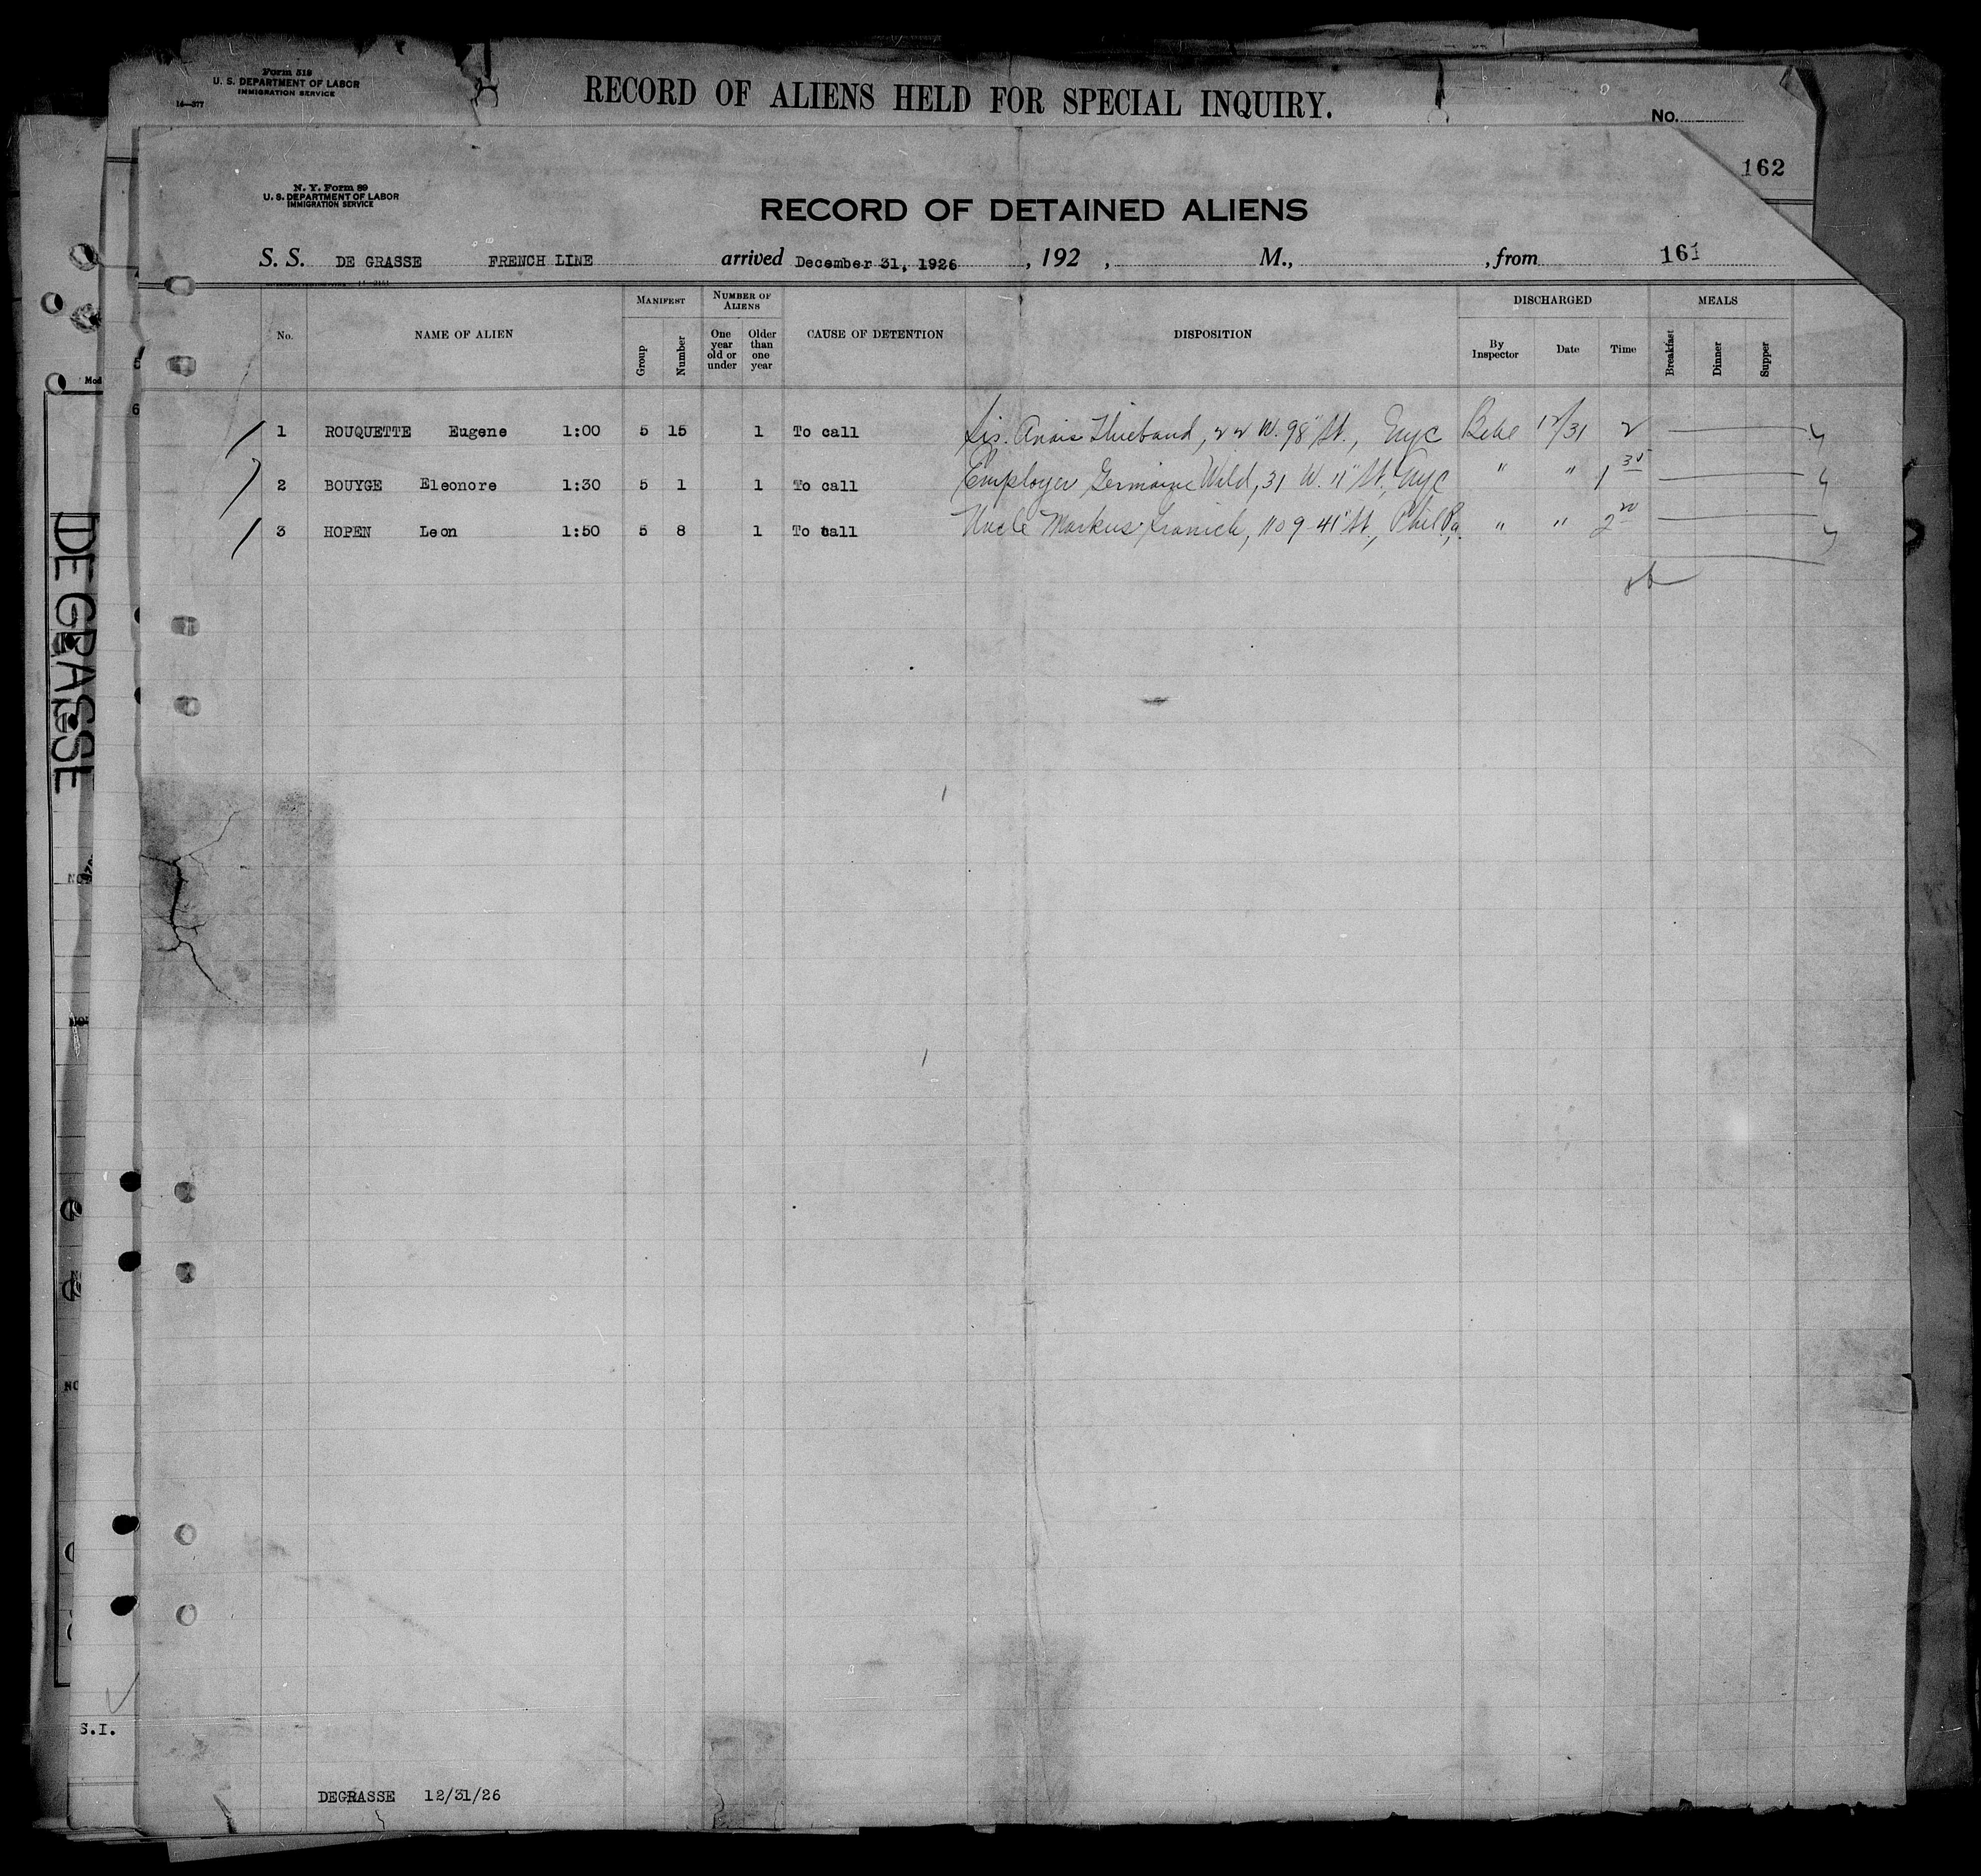 Form 519
U. S. DEPARTMENT OF LABOR
IMMIGRATION SERVICE
16—377
RECORD OF ALIENS HELD FOR SPECIAL INQUIRY.
No.
162
N. Y. Form 89
U. S. DEPARTMENT OF LABOR
IMMIGRATION SERVICE
RECORD OF DETAINED ALIENS
S. S. DE GRASSE FRENCH LINE arrived December 31, 1926 , 192 , M., , from 161
No. NAME OF ALIEN MANIFEST Group Number NUMBER OF ALIENS One year old or under Older than one year CAUSE OF DETENTION DISPOSITION DISCHARGED By Inspector Date Time MEALS Breakfast Dinner Supper
1 ROUQUETTE Eugene 1:00 5 15 1 To call Sis. Anais Thiebaud, 22 W. 98" St., Nyc 12/31 2
2 BOUYGE Eleonore 1:30 5 1 1 To call Employer Germaine Wild, 31 W. 11" St, Nyc " " 1 35
3 HOPEN Leon 1:50 5 8 1 To call Uncle Markus 1109-41" St., Phil Pa. " " 2 20
DE GRASSE
S.I.
DEGRASSE 12/31/26